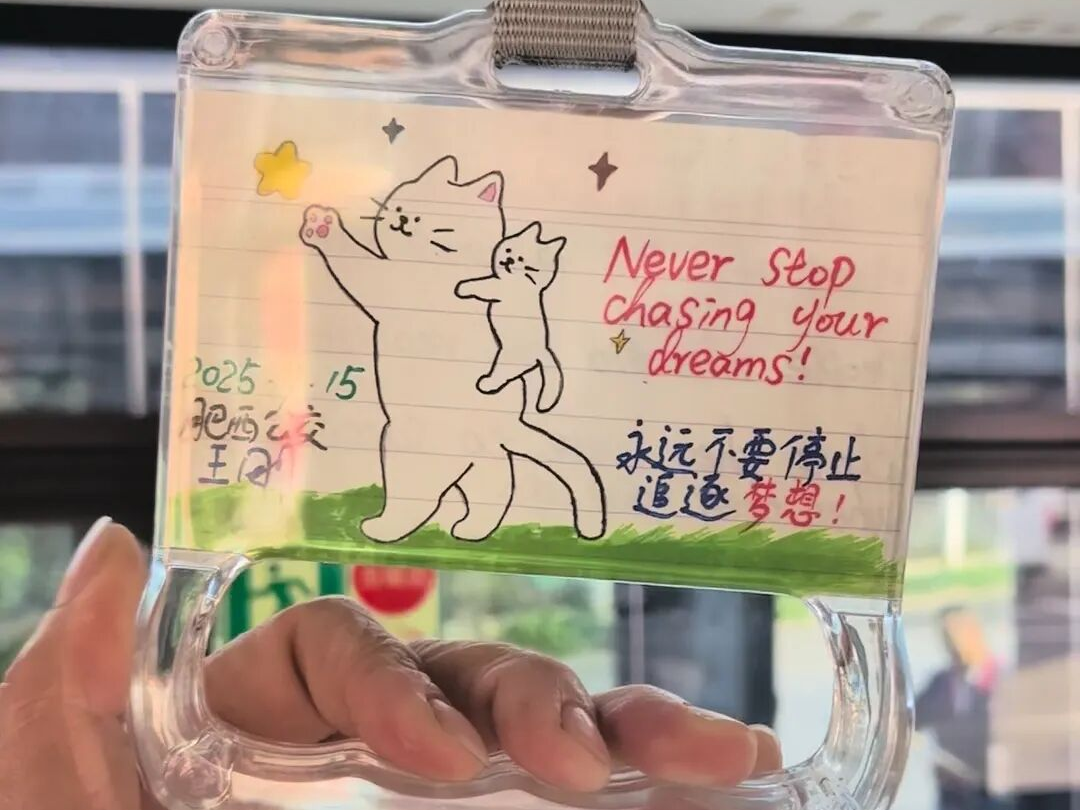 Never Stop
chasing your
dreams!
2025 15
肥西公交
王
永远不要停止
追逐梦想！